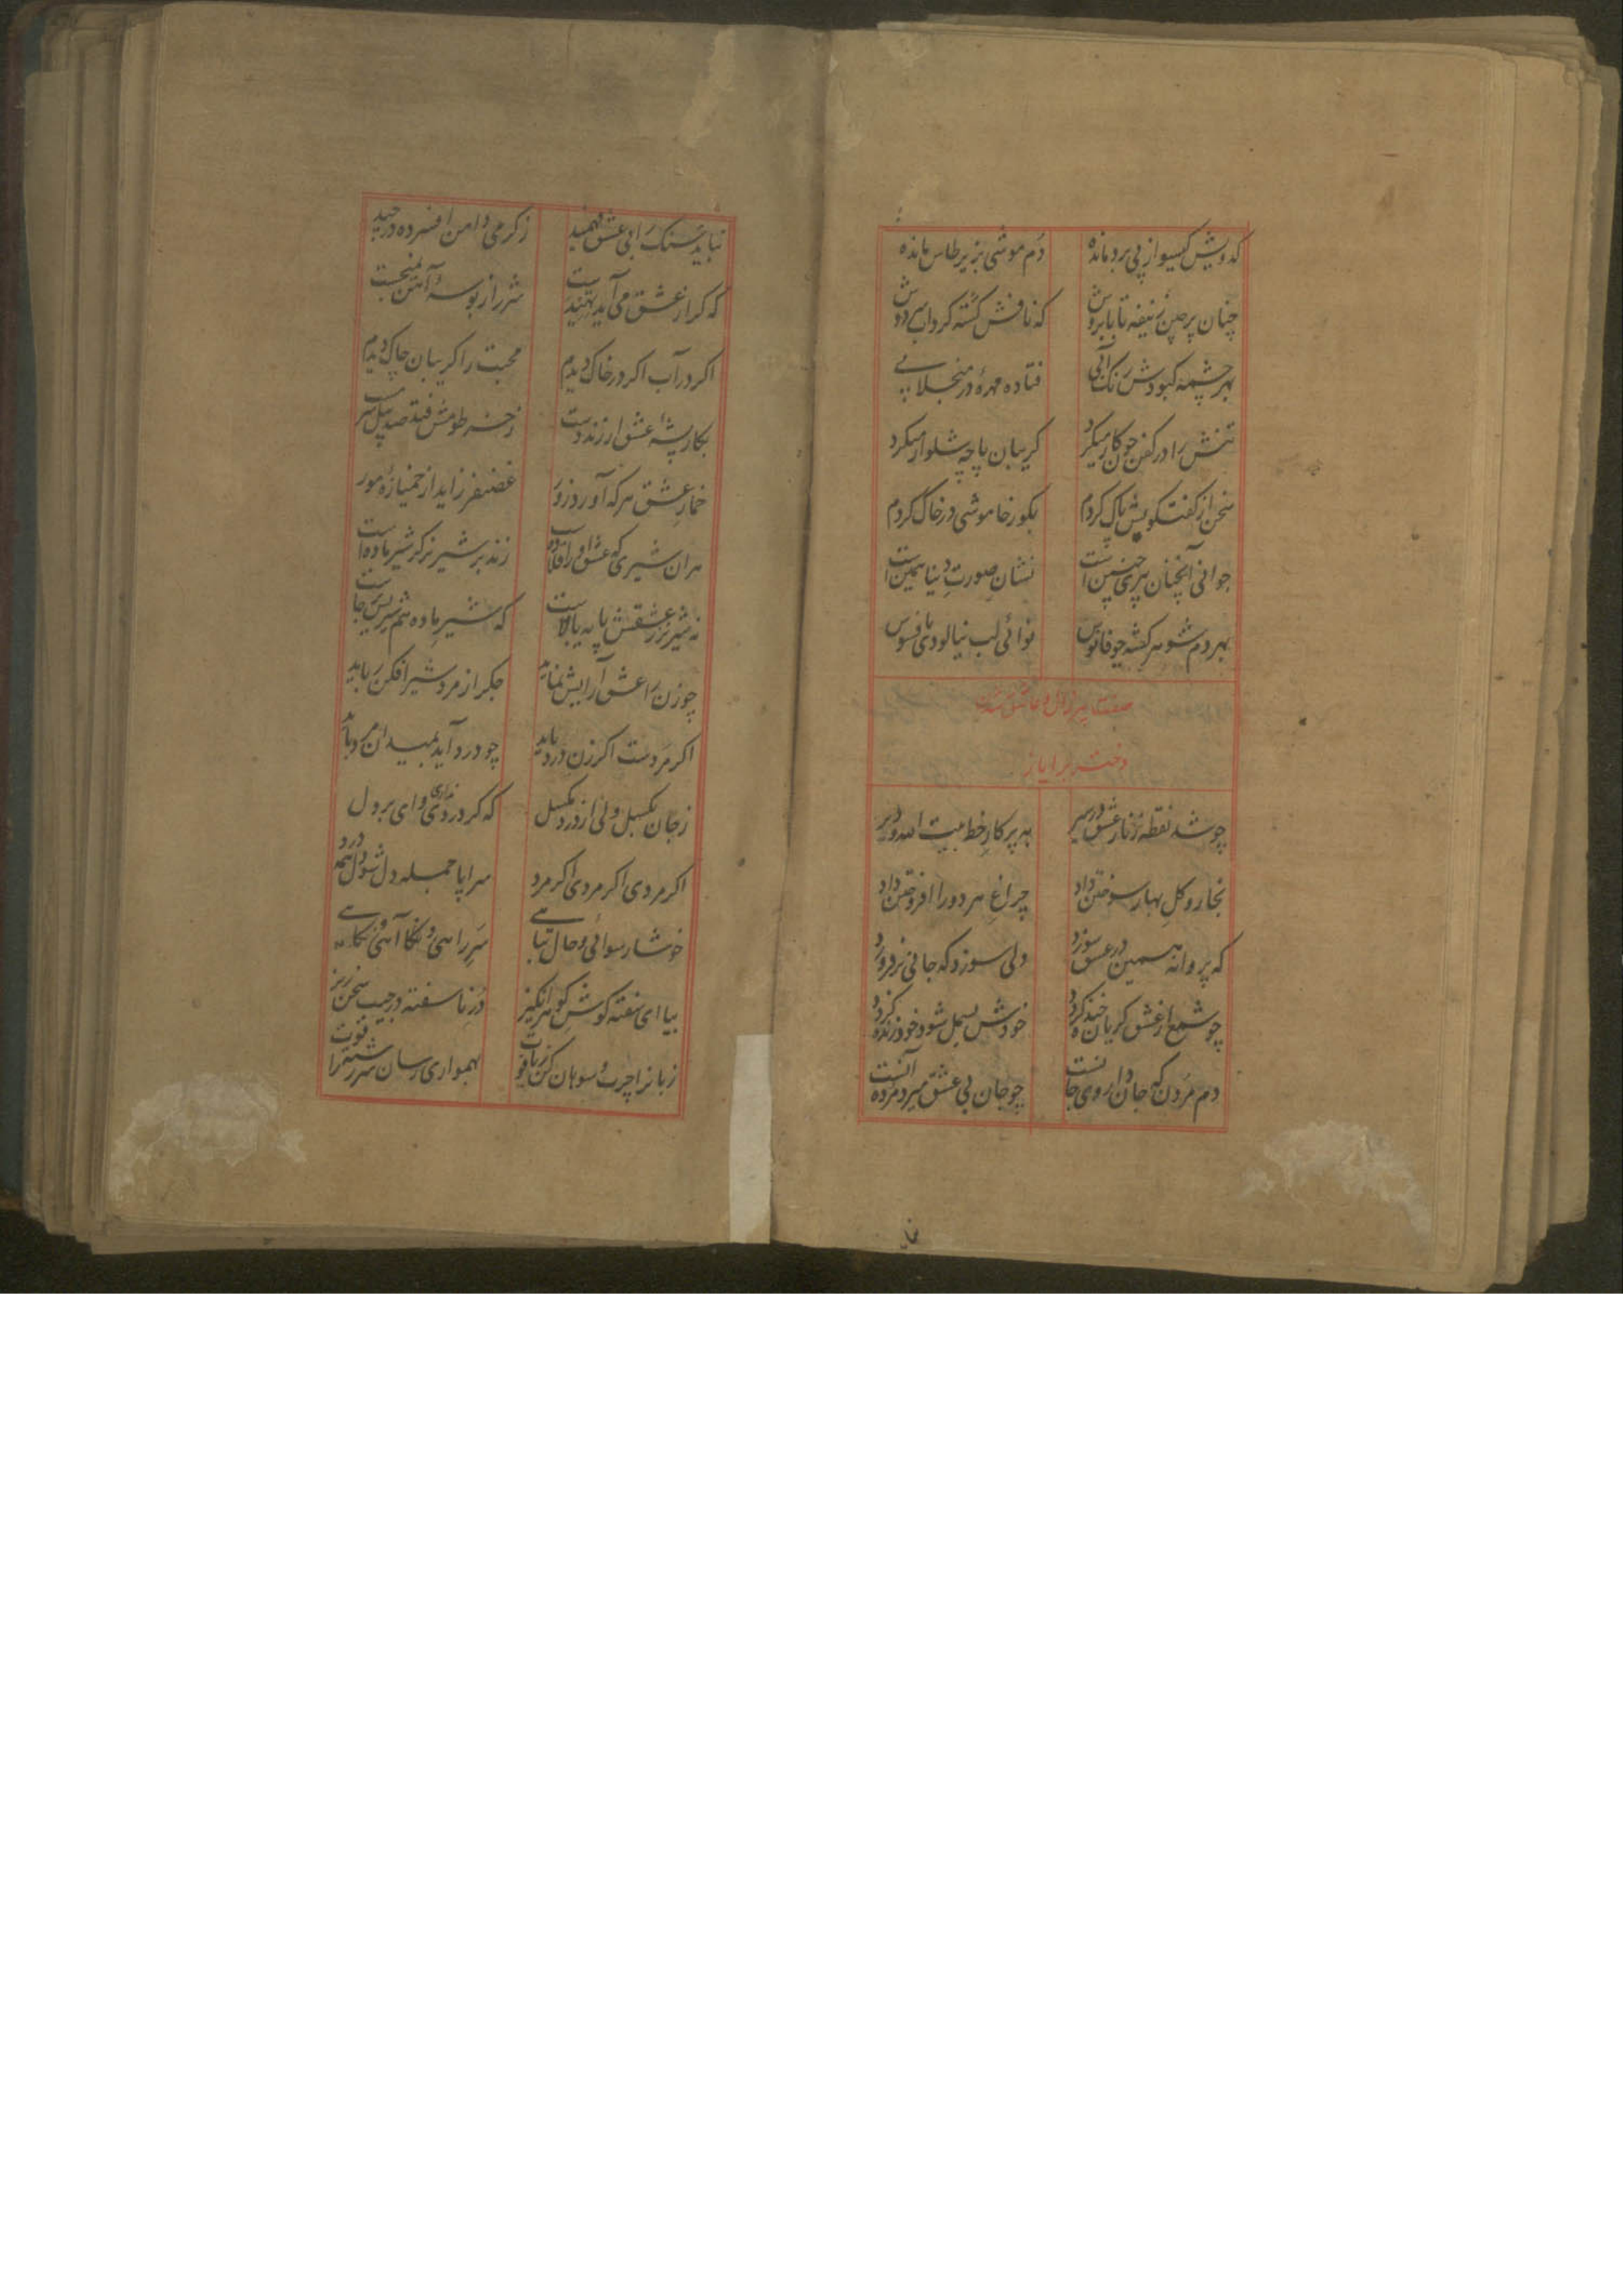 کدویش کیسو از پی برد مانده دم موشی بزیر طاس مانده
چنان پرچین ز نیفه تا بابروش که نافش کشته کرداب سر دوش
بهر چشمه کبودش رنک آبی فتاده مهرهٔ در منجلابے
تنش را در کفن چون کار میکرد کریبان پاچه شلوار میکرد
سخن از کفت کویش پاک کردم بکور خاموشی در خاک کردم
جوانی آنچنان پیری چنین است نشان صورت دنیا همین است
بهر دم شوهر کشته چو فانوس نوائی لب نیالودی بافسوس
صفت پیر زال و عاشق شدن
دختر بر ایاز
چو شد نقطه ز نار عشق در سیر به پرکار خط بیت الله و دیر
بخار و کل بهار سوختن داد چراغ هر دو را افروختن داد
که پروانه همین در عشق سوزد دلی سوزد که جانی بر فروزد
چو شمع از عشق کریان خنده کردد خودش بسمل شود خود زنده کردد
دم مردن که جان را روی جانست چو جان بی عشق میرد مرده آنست
نباید سنک را بی عشق فهمید ز کرمی دامن افسرده در چید
که کر از عشق می آید تهیدست شرر از بوسهٔ آهن نمیجست
اکر در آب اکر در خاک دیدم محبت را کریبان چاک دیدم
بکار پشهٔ عشق ار زند دست ز خرطومش فتد صد پیل سر مست
خمار عشق هر که آورد زور غضنفر زاید از خمیازهٔ مور
هران شیری که عشق او را فتادست زند بر شیر نر کر شیر ماده است
نه شیر نر ز عشقش پایه بالاست که شیر ماده هم شیریش جاست
چو زن را عشق آرایش نماید جکر از مرد شیر افکن رباید
اکر مردست اکر زن درد باید چو درد آید بمیدان مرد باید
ز جان بکسل ولی از درد مکسل که کر دردی نداری وای بر دل
اکر مردی اکر مردی اکر مرد سراپا جمله دل شو دل همه درد
خوشا رسوائی و حال تباهے سر راهی و آهی و نکاهے
بیا ای سفته کوش کوهر انکیز در ناسفته در جیب سخن ریز
زبانرا چرب سوهان کن ز یاقوت بهمواری رسان شررت را قوت